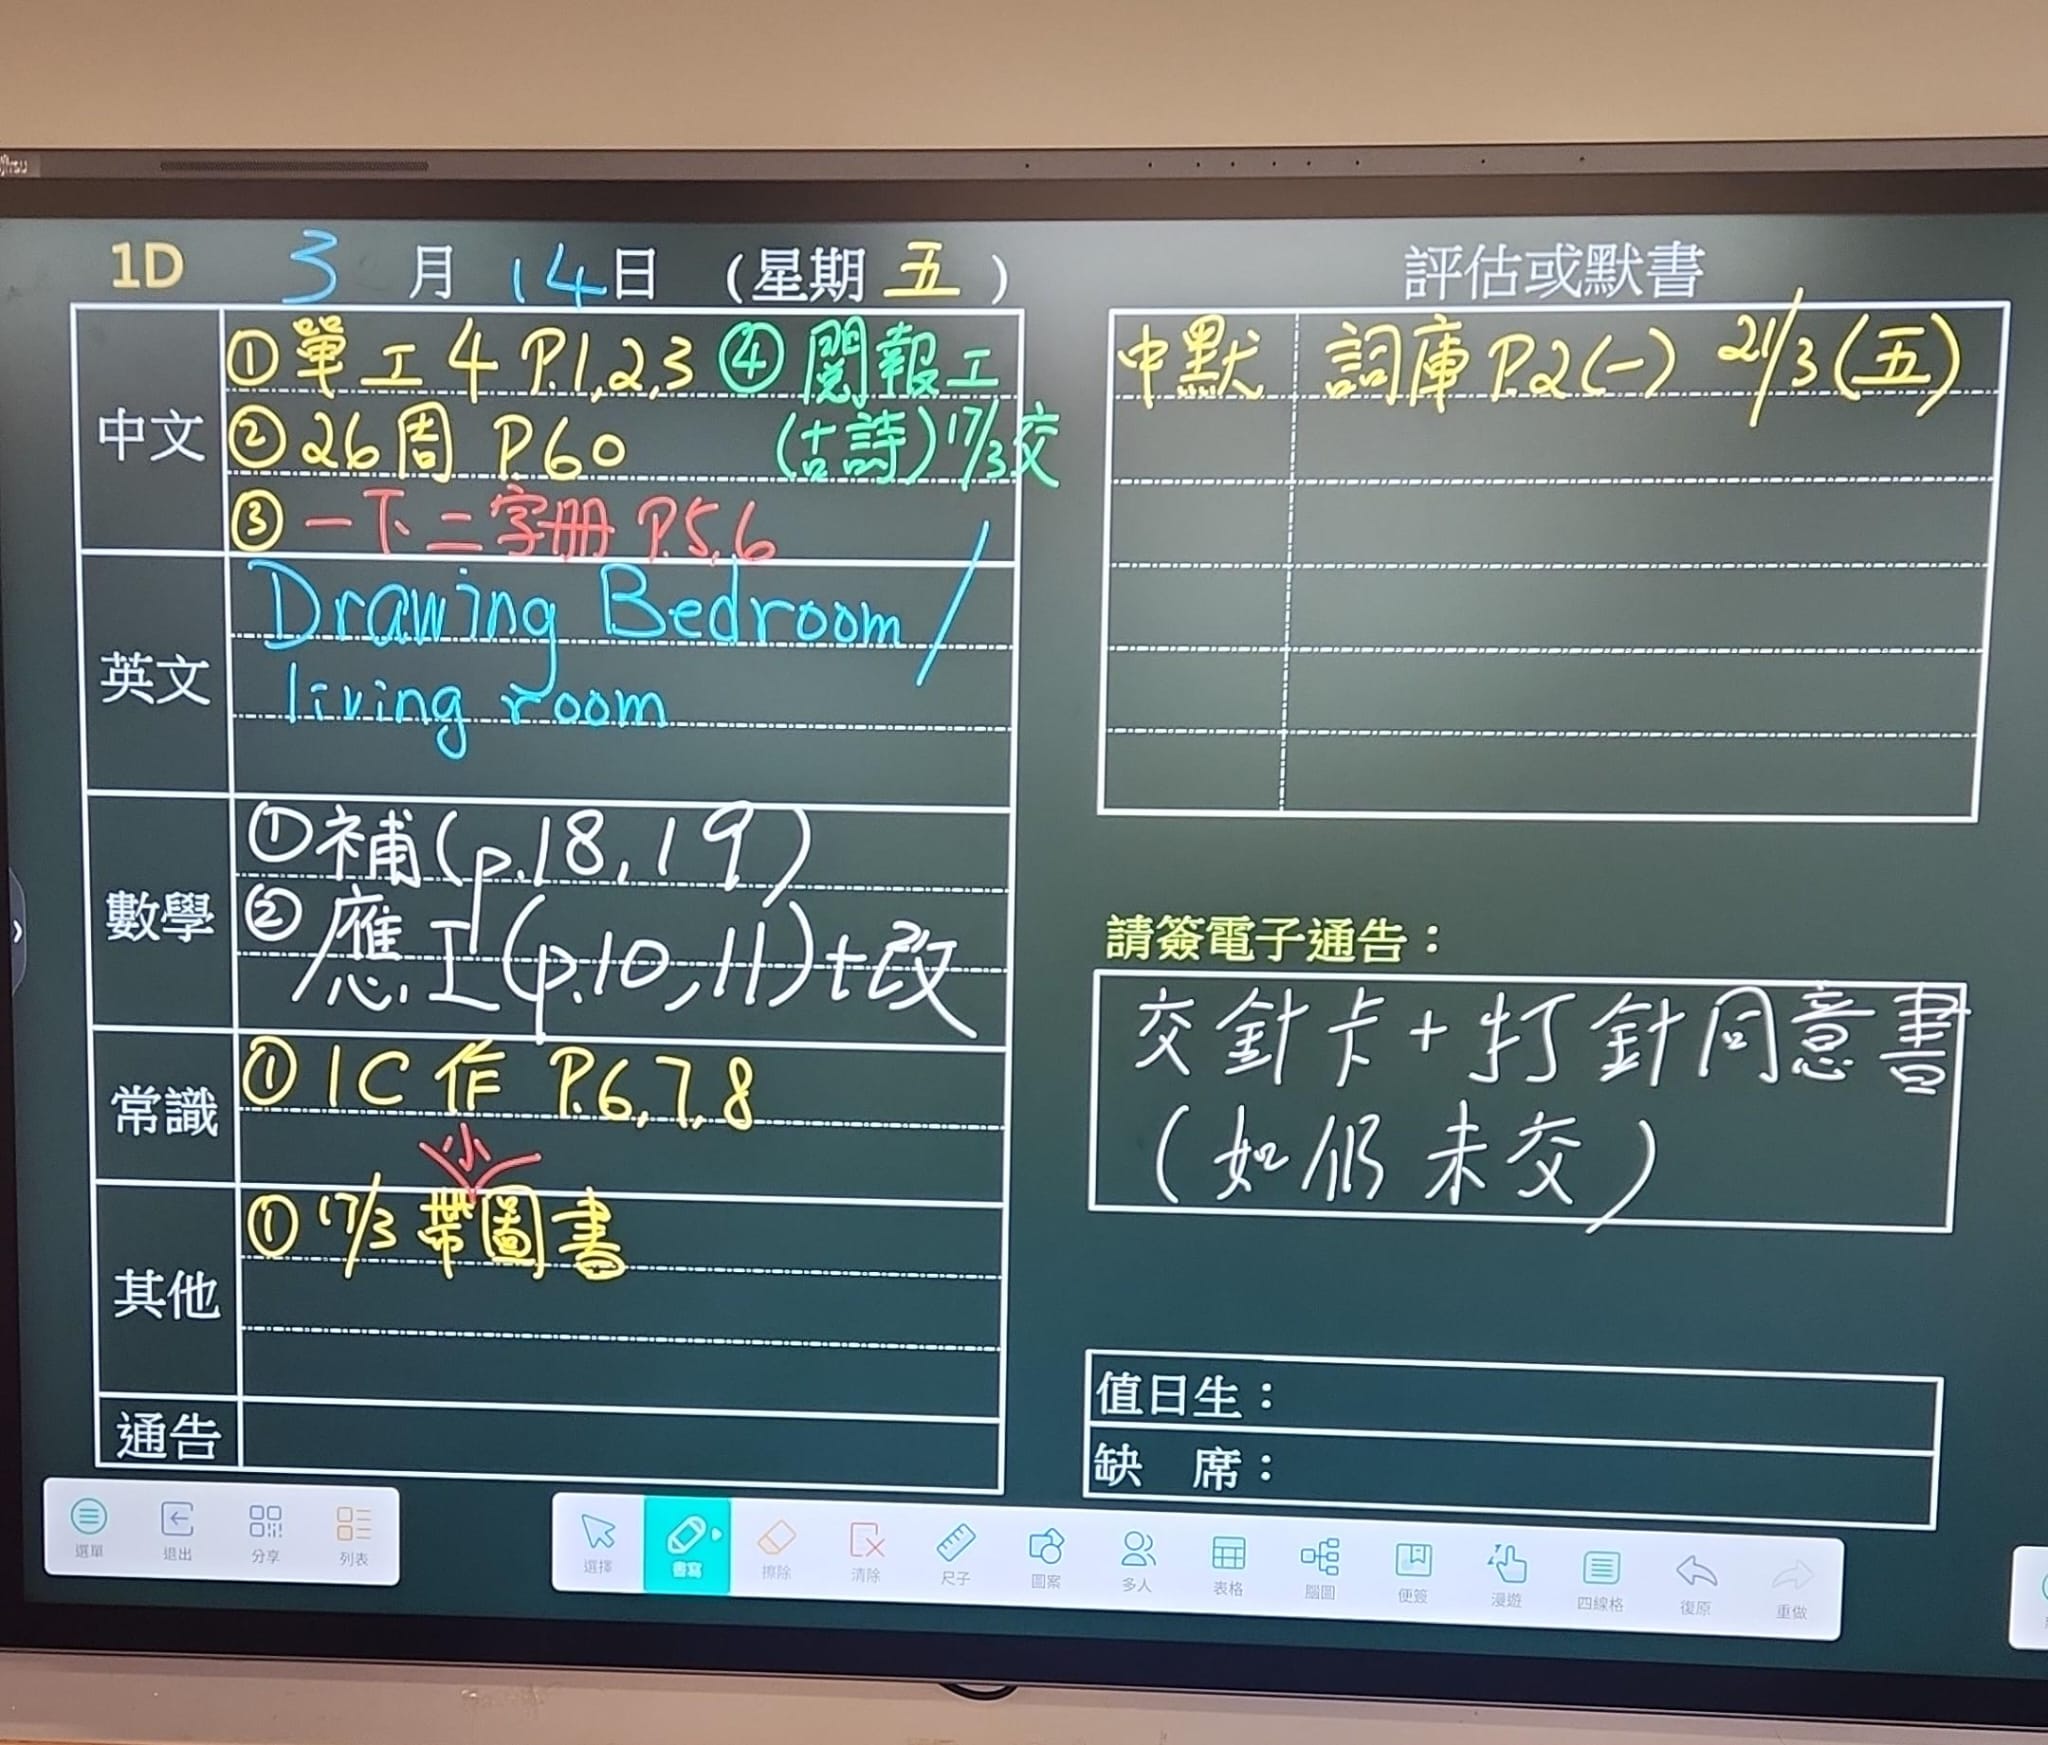 1D 3 月 14 日 (星期 五)
中文
① 單工 4 P.1,2,3 ④ 閱報工
② 26周 P.60 (古詩) 17/3交
③ 一下二字冊 P.5,6
英文
Drawing Bedroom /
living room
數學
① 補(p.18,19)
② 應工(p.10,11)+改
常識
① 1C 作 P.6,7,8
其他
小
① 17/3 帶圖書
通告
評估或默書
中默 詞庫 P.2(一) 21/3(五)
請簽電子通告：
交針卡+打針同意書
(如仍未交)
值日生：
缺 席：
選單 退出 分享 列表
選擇 書寫 擦除 清除 尺子 圖案 多人 表格 腦圖 便簽 漫遊 四線格 復原 重做